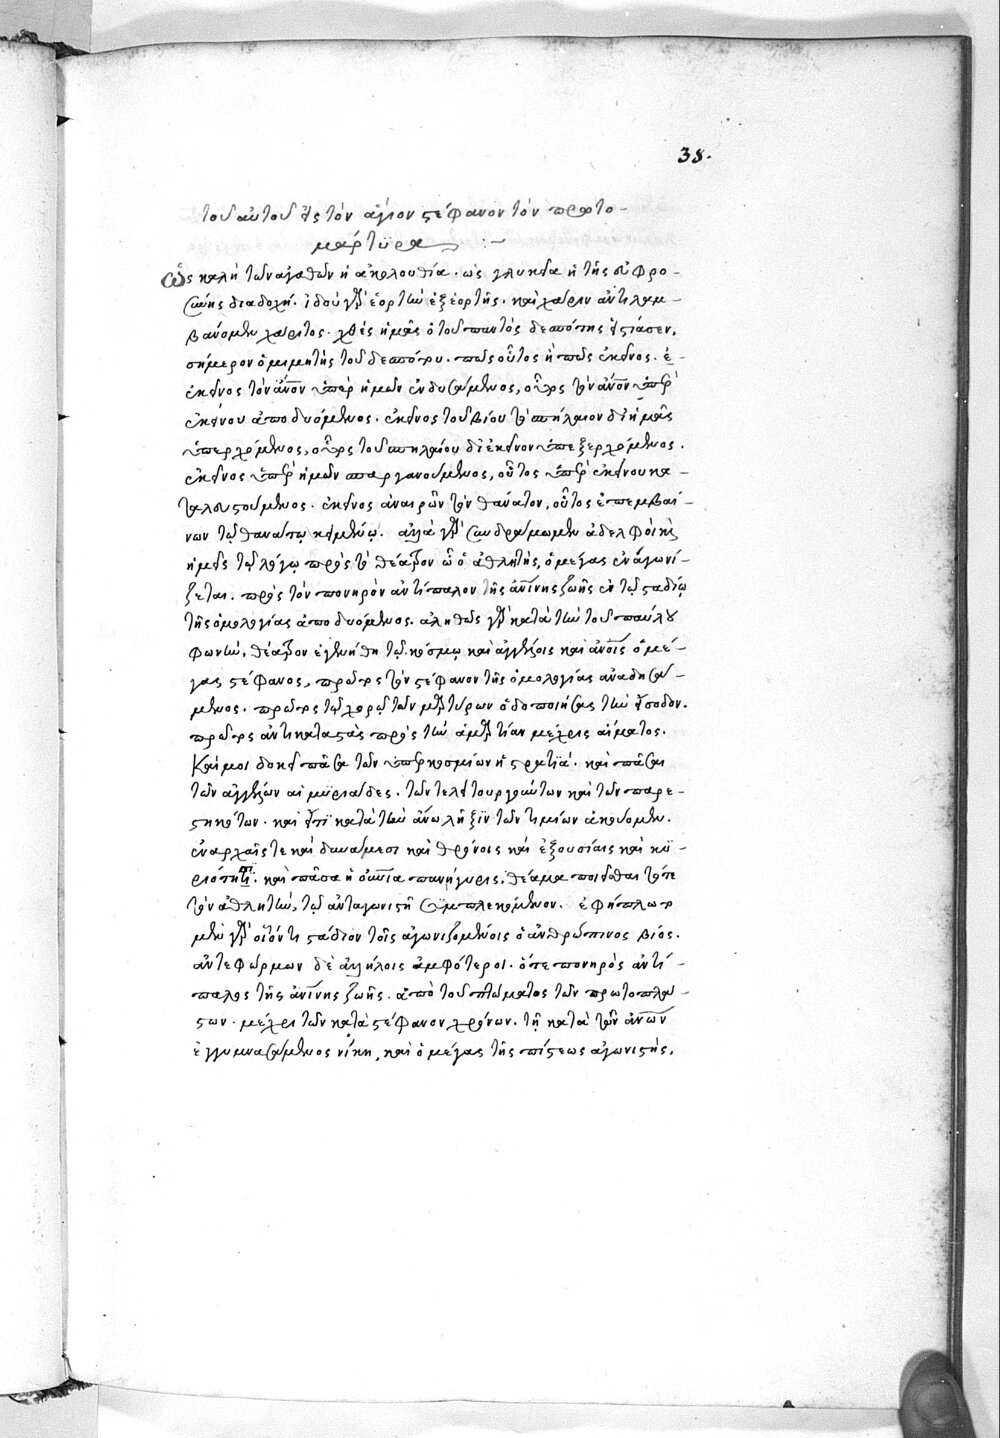 38.
τοῦ αὐτοῦ εἰς τὸν ἅγιον στέφανον τὸν πρωτο-
μάρτϋρα :~
Ὡς καλὴ τῶν ἀγαθῶν ἡ ἀκολουθία. ὡς γλυκεῖα ἡ τῆς εὐφρο-
σύνης διαδοχή. ἰδοὺ γὰρ ἑορτὴν ἐξ ἑορτῆς. καὶ χάριν ἀντιλαμ-
βάνομεν χάριτος. χθὲς ἡμᾶς ὁ τοῦ παντὸς δεσπότης εἱστίασεν,
σήμερον ὁ μιμητὴς τοῦ δεσπότου. πῶς οὗτος ἢ πῶς ἐκεῖνος. ἐ-
ἐκεῖνος τὸν ἄνον ὑπὲρ ἡμῶν ἐνδυσάμενος, οὗτος τὸν ἄνον ὑπὲρ
ἐκείνου ἀποδυόμενος. ἐκεῖνος τοῦ βίου τὸ σπήλαιον δι' ἡμᾶς
ὑπερχόμενος, οὗτος τοῦ σπηλαίου δι' ἐκεῖνον ὑπεξερχόμενος.
ἐκεῖνος ὑπὲρ ἡμῶν σπαργανούμενος, οὗτος ὑπὲρ ἐκείνου κα-
ταλουστούμενος. ἐκεῖνος ἀναιρῶν τὸν θάνατον, οὗτος ἐπεμβαί-
νων τῷ θανάτῳ κειμένῳ. ἀλλὰ γὰρ συνδράμωμεν ἀδελφοὶ καὶ
ἡμεῖς τῷ λόγῳ πρὸς τὸ θέατρον ὧ ὁ ἀθλητὴς, ὁ μέγας ἐναγωνί-
ζεται. πρὸς τὸν πονηρὸν ἀντίπαλον τῆς ἀνίνης ζωῆς ἐν τῷ σταδίῳ
τῆς ὁμολογίας ἀποδυόμενος. ἀληθῶς γὰρ κατὰ τὴν τοῦ παύλου
φωνὴν, θέατρον ἐγενήθη τῷ κόσμῳ καὶ ἀγγέλοις καὶ ἀνοις ὁ μέ-
γας στέφανος, πρῶτος τὸν στέφανον τῆς ὁμολογίας ἀναδησά-
μενος. πρῶτος τῷ χορῷ τῶν μαρτύρων ὁδοποιήσας τὴν εἴσοδον.
πρῶτος ἀντικαταστὰς πρὸς τὴν ἁμαρτίαν μέχρις αἵματος.
Καί μοι δοκεῖ πᾶσα τῶν ὑπερκοσμίων ἡ στρατιά. καὶ πᾶσαι
τῶν ἀγγέλων αἱ μϋριάδες. τῶν τε λειτουργούντων καὶ τῶν παρε-
στηκότων. καὶ εἴ τϊ κατὰ τὴν ἄνω λῆξϊν τῶν τιμίων ἀκούομεν.
ἐν ἀρχαῖς τε καὶ δυνάμεσι καὶ θρόνοις καὶ ἐξουσίαις καὶ κϋ-
ριότητϊ. καὶ πᾶσα ἡ οὐνία πανήγυρις, θέαμα ποιεῖσθαι τότε
τὸν ἀθλητὴν, τῷ ἀνταγωνιστῇ συμπλεκόμενον. ἐφήπλωτο
μὲν γὰρ οἷόν τι στάδιον τοῖς ἀγωνιζομένοις ὁ ἀνθρώπινος βίος.
ἀντεφώρμων δὲ ἀλλήλοις ἀμφότεροι. ὅ τε πονηρὸς ἀντί-
παλος τῆς ἀνίνης ζωῆς. ἀπὸ τοῦ πτώματος τῶν πρωτοπλά-
στων. μέχρι τῶν κατὰ στέφανον χρόνων. τῇ κατὰ τῶν ἀνων
ἐγγυμνασάμενος νίκῃ, καὶ ὁ μέγας τῆς πίστεως ἀγωνιστής,